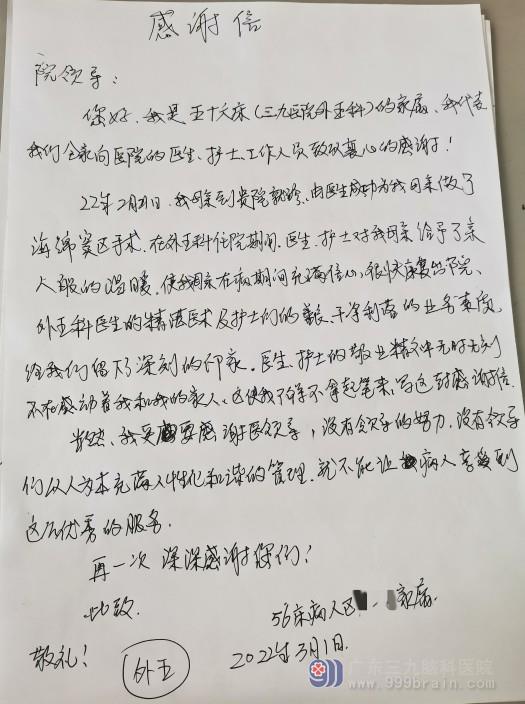 感谢信
院领导：
您好，我是五十六床（三九医院外五科）的家属，我代表
我们全家向医院的医生、护士、工作人员致以衷心的感谢！
22年2月21日，我母亲到贵院就诊，由医生成功为我母亲做了
海绵窦区手术，在外五科住院期间，医生、护士对我母亲给予了亲
人般的温暖，使我母亲在病期间充满信心，很快康复出院、
外五科医生的精湛医术及护士们的 干净利落的业务素质，
给我们留下了深刻的印象。医生、护士的敬业精神无时无刻
不在感动着我和我的家人、这使我不得不拿起笔来，写这封感谢信.
当然、我更要感谢医领导，没有领导的努力，没有领导
们以人为本充满人性化和谐的管理，就不能让病人享受到
这么优秀的服务。
再一次 深深感谢您们！
此致
56床病人区 家属
敬礼！
外五
2022年3月1日.
广东三九脑科医院
www.999brain.com